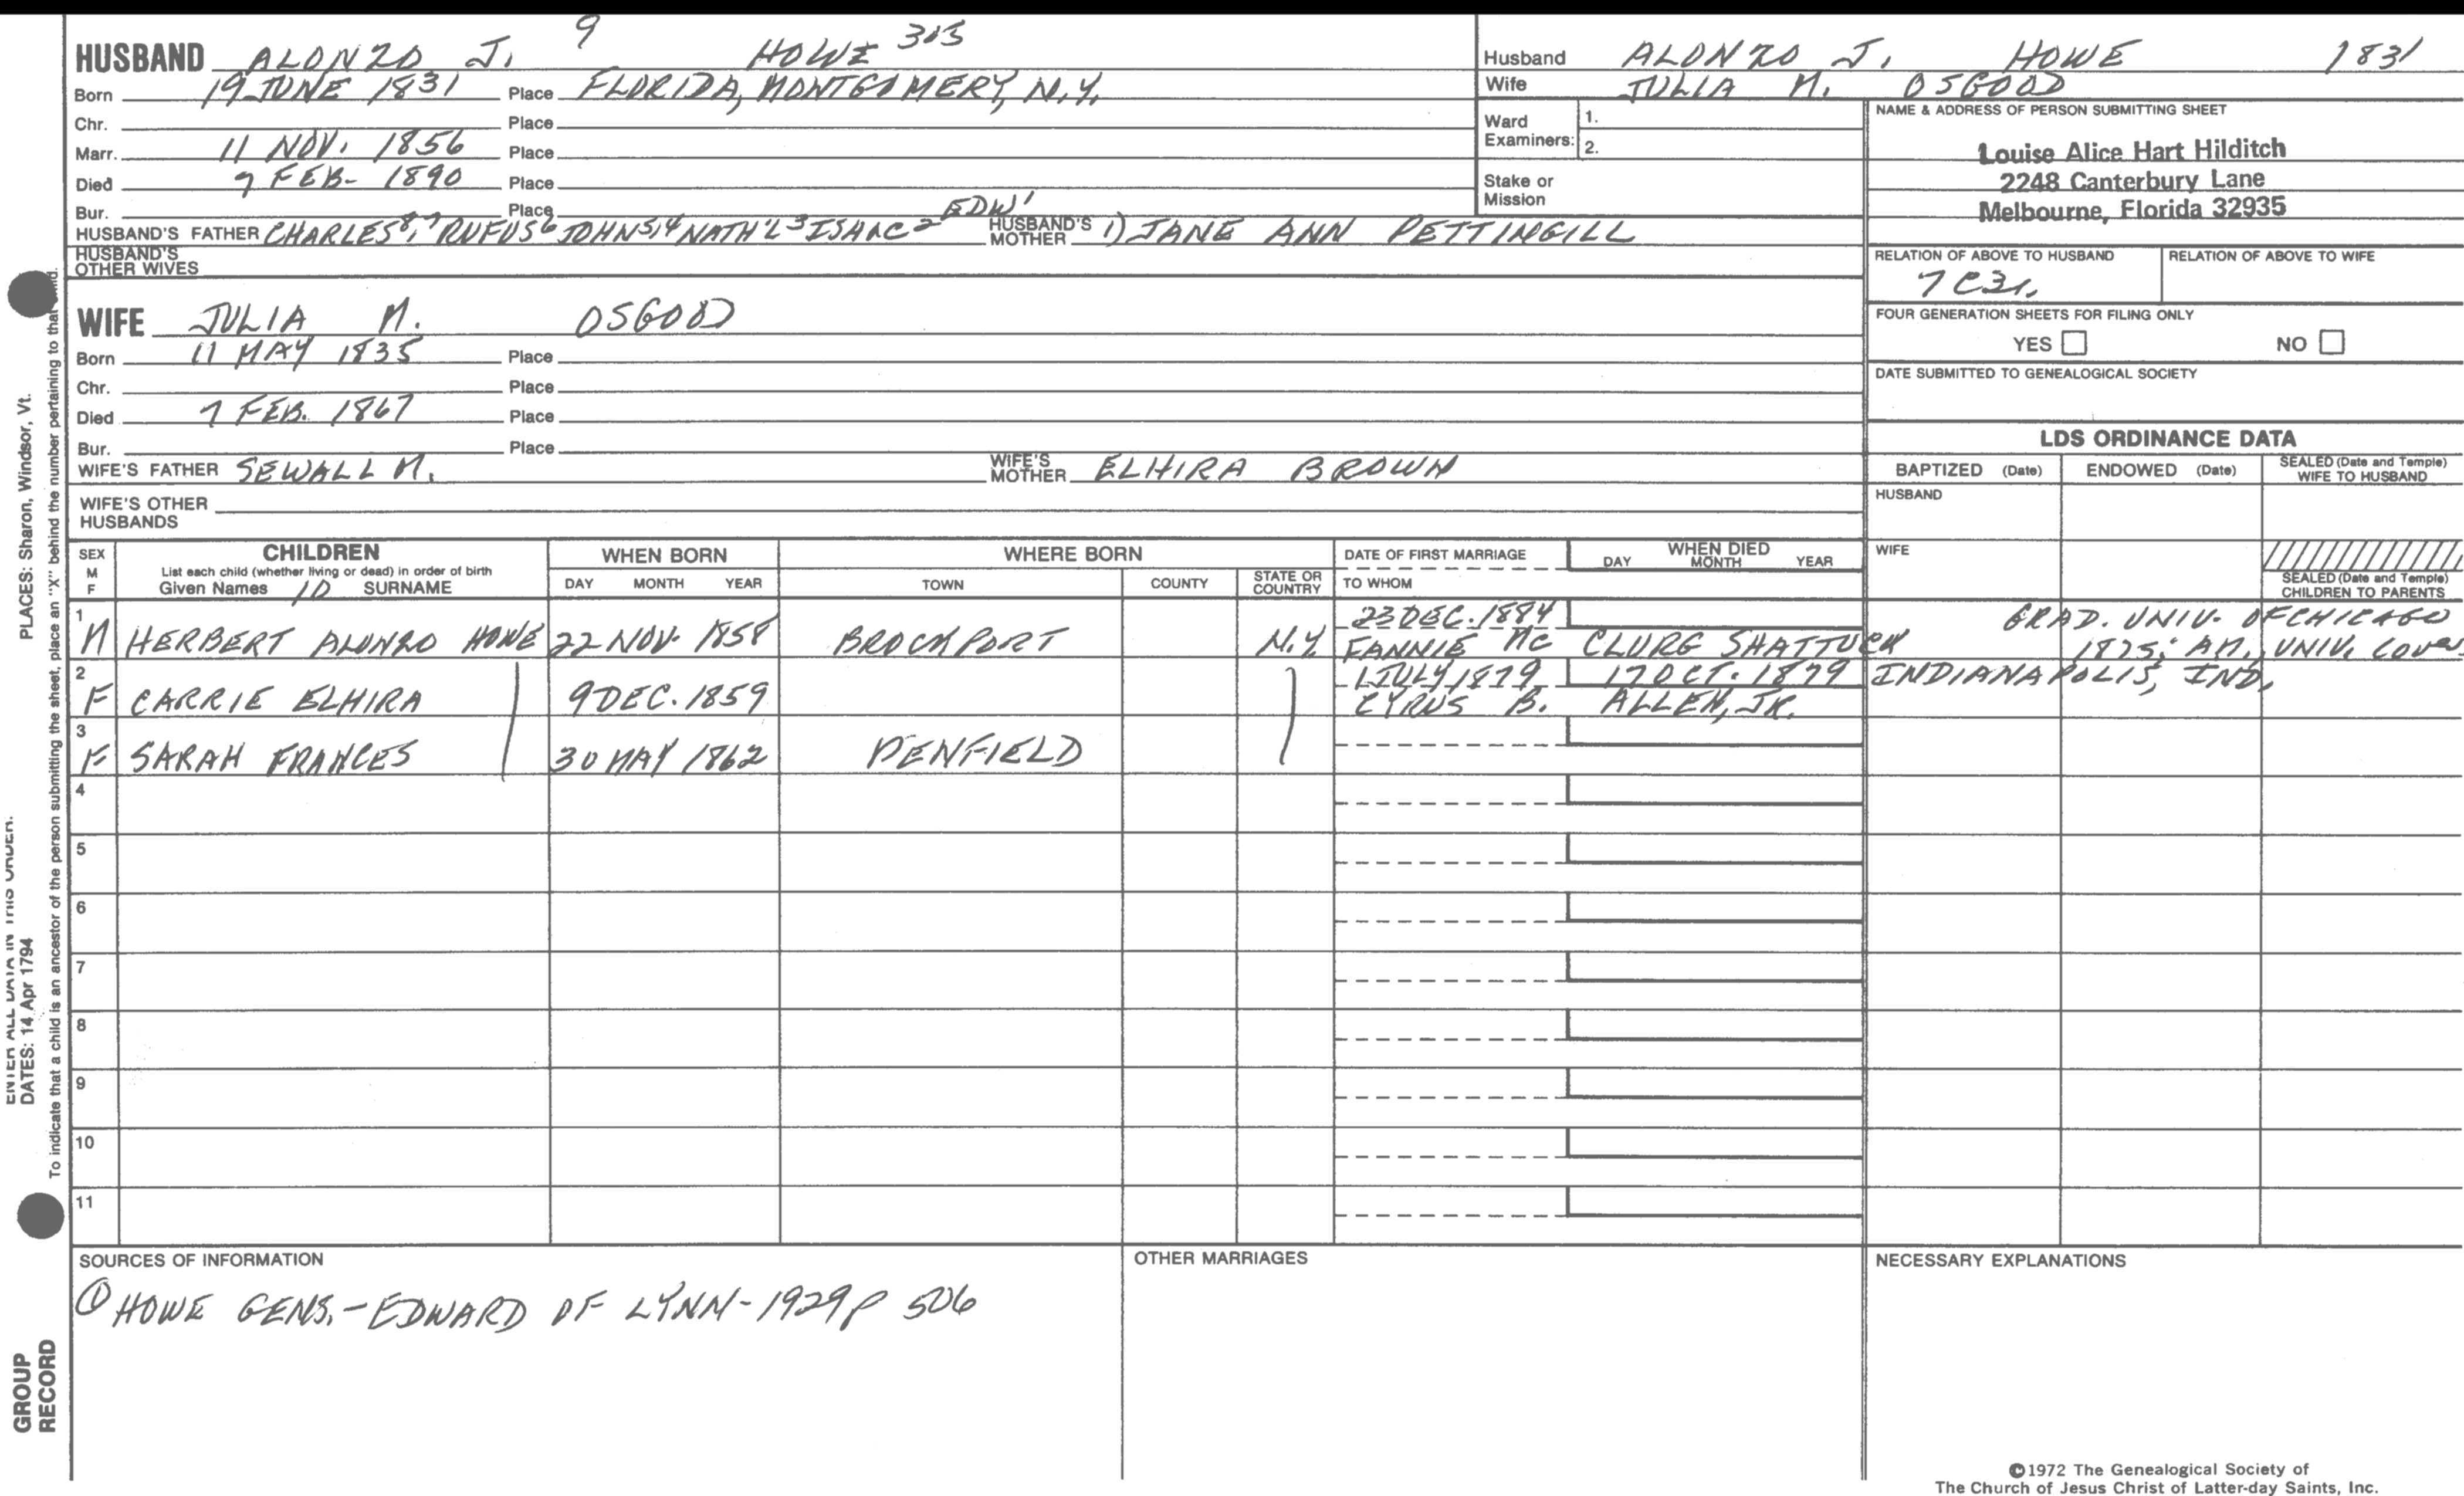 HUSBAND ALONZO J. 9 HOWE 303
Born 19 JUNE 1831 Place FLORIDA, MONTGOMERY, N.Y.
Chr. Place
Marr. 11 NOV. 1856 Place
Died 7 FEB- 1890 Place
Bur. Place
HUSBAND'S FATHER CHARLES8, 7 RUFUS6 JOHN5,4 NATH'L3 ISAAC2 EDW1 HUSBAND'S MOTHER 1) JANE ANN PETTINGILL
HUSBAND'S OTHER WIVES
Husband ALONZO J. HOWE 1831
Wife JULIA M. OSGOOD
Ward Examiners: 1.
2.
Stake or Mission
NAME & ADDRESS OF PERSON SUBMITTING SHEET
Louise Alice Hart Hilditch
2248 Canterbury Lane
Melbourne, Florida 32935
RELATION OF ABOVE TO HUSBAND RELATION OF ABOVE TO WIFE
7C3r.
FOUR GENERATION SHEETS FOR FILING ONLY
YES NO
DATE SUBMITTED TO GENEALOGICAL SOCIETY
WIFE JULIA M. OSGOOD
Born 11 MAY 1835 Place
Chr. Place
Died 7 FEB. 1867 Place
Bur. Place
WIFE'S FATHER SEWALL M. WIFE'S MOTHER ELHIRA BROWN
WIFE'S OTHER HUSBANDS
LDS ORDINANCE DATA
BAPTIZED (Date) ENDOWED (Date) SEALED (Date and Temple) WIFE TO HUSBAND
HUSBAND
WIFE
SEALED (Date and Temple) CHILDREN TO PARENTS
SEX M F
CHILDREN
List each child (whether living or dead) in order of birth
Given Names 10 SURNAME
WHEN BORN
DAY MONTH YEAR
WHERE BORN
TOWN COUNTY STATE OR COUNTRY
DATE OF FIRST MARRIAGE
TO WHOM
WHEN DIED
DAY MONTH YEAR
1 23 DEC. 1884 GRAD. UNIV. OF CHICAGO
M HERBERT ALONZO HOWE 22 NOV. 1858 BROCKPORT N.Y. FANNIE MC CLURG SHATTUCK 1875; AM., UNIV.
2 1 JULY 1879 17 OCT. 1879 INDIANAPOLIS, IND.
F CARRIE ELHIRA 9 DEC. 1859 CYRUS B. ALLEN, JR.
3
F SARAH FRANCES 30 MAY 1862 PENFIELD
4
5
6
7
8
9
10
11
SOURCES OF INFORMATION
① HOWE GENS. - EDWARD OF LYNN - 1929 p 506
OTHER MARRIAGES
NECESSARY EXPLANATIONS
©1972 The Genealogical Society of
The Church of Jesus Christ of Latter-day Saints, Inc.
PLACES: Sharon, Windsor, Vt.
ENTER ALL DATA IN THIS ORDER:
DATES: 14 Apr 1794
To indicate that a child is an ancestor of the person submitting the sheet, place an "X" behind the number pertaining to that child.
GROUP
RECORD